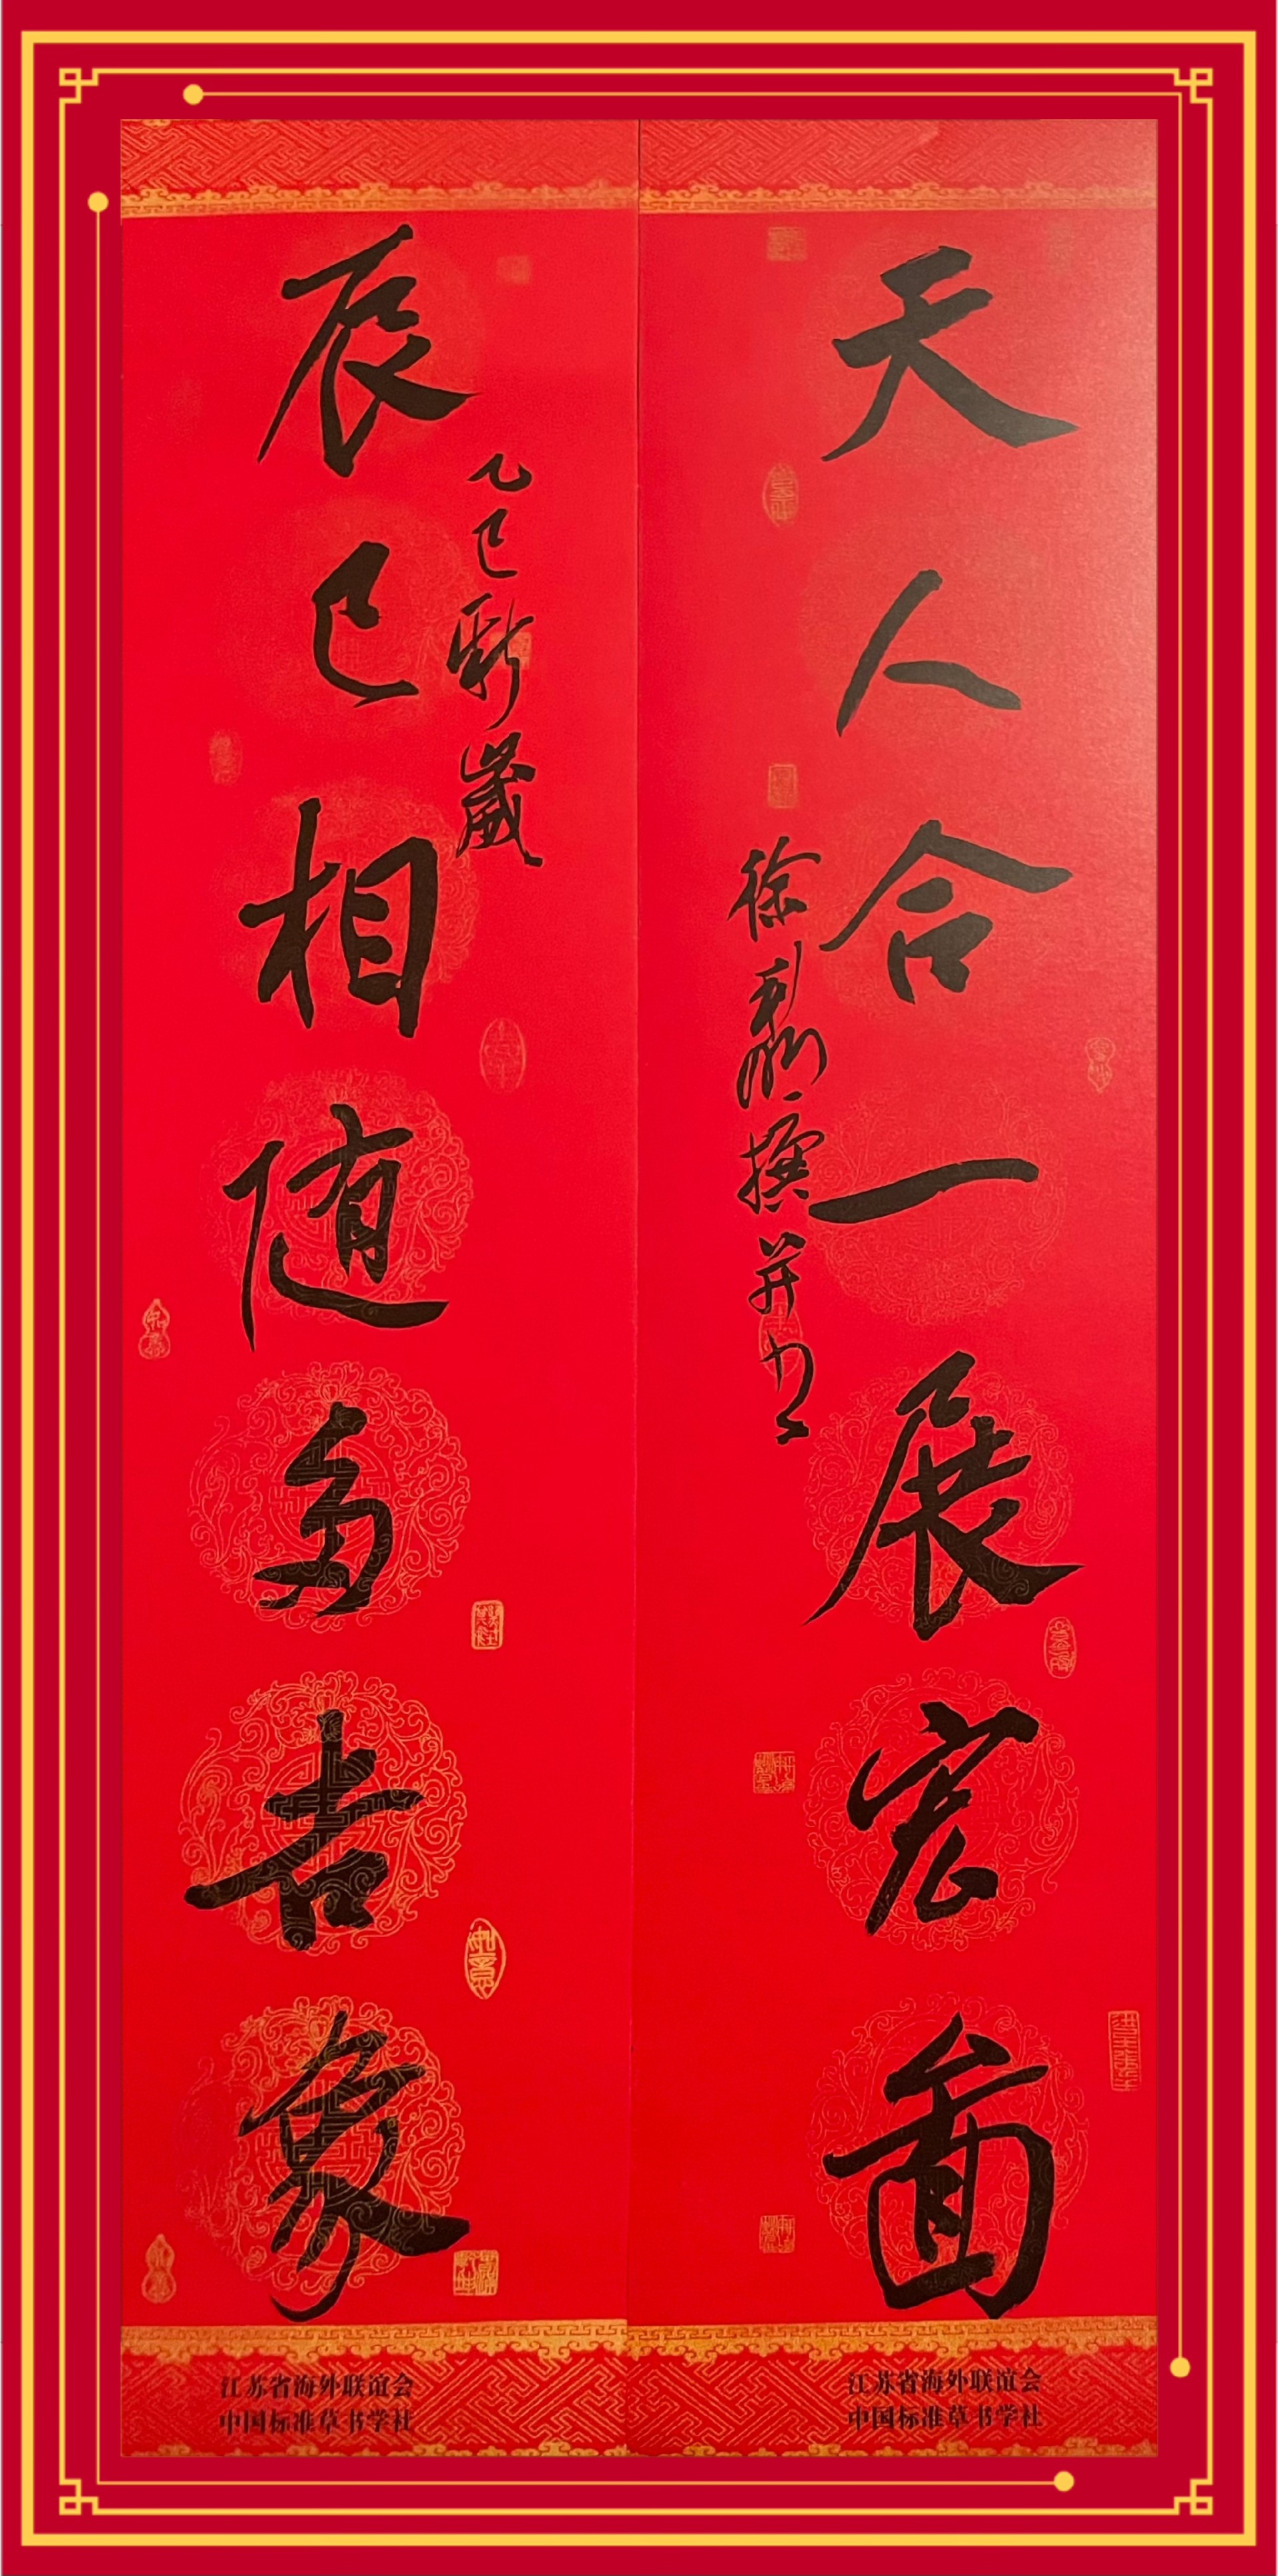 天人合一展宏圖
徐利明撰并书
乙巳新歲
辰巳相随多吉象
如意
江苏省海外联谊会
中国标准草书学社
江苏省海外联谊会
中国标准草书学社